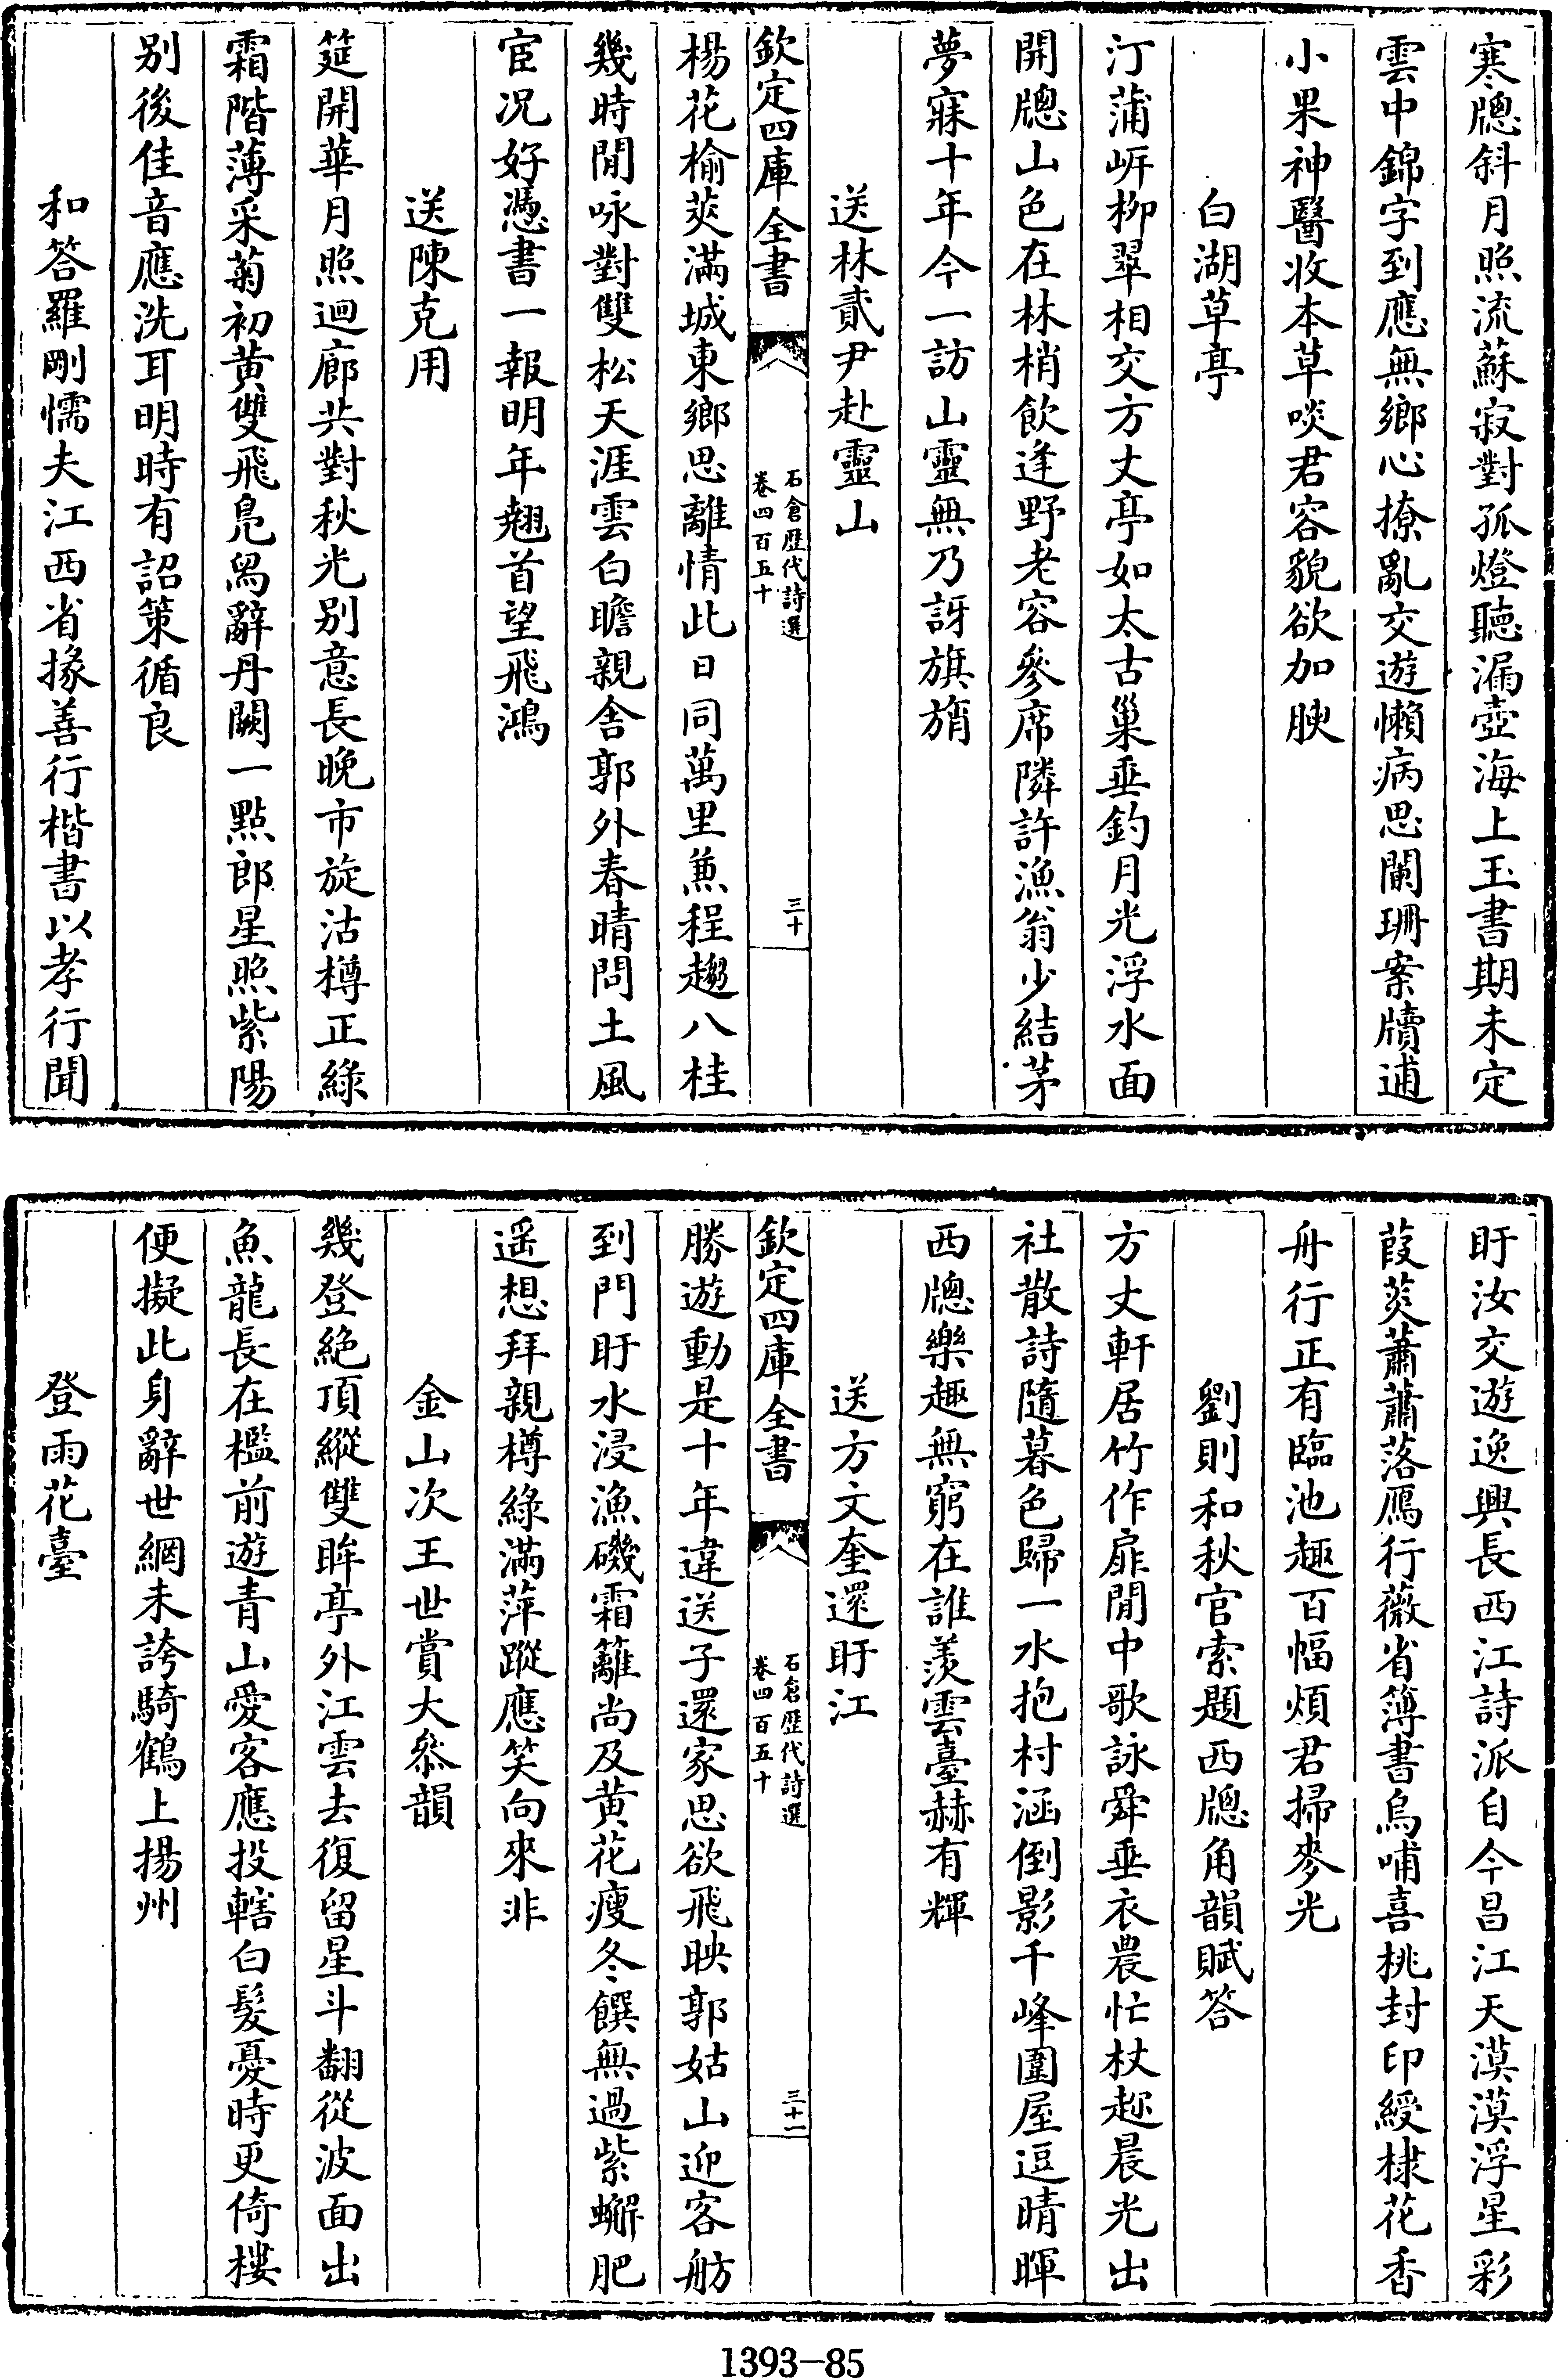 寒牕斜月照流蘇寂對孤燈聽漏壺海上玉書期未定
雲中錦字到應無鄉心撩亂交遊懶病思闌珊案牘逋
小果神醫收本草啖君容貌欲加腴
白湖草亭
汀蒲㟁栁翠相交方丈亭如太古巢垂釣月光浮水面
開牕山色在林梢飲逢野老容參席隣許漁翁少結茅
夢寐十年今一訪山靈無乃訝旗旓
送林貳尹赴靈山
欽定四庫全書
石倉歴代詩選
卷四百五十
三十
楊花榆莢滿城東鄉思離情此日同萬里兼程趨八桂
幾時閒咏對雙松天涯雲白瞻親舍郭外春晴問土風
宦况好憑書一報明年翹首望飛鴻
送陳克用
筵開華月照迴廊共對秋光别意長晚市旋沽樽正綠
霜階薄采菊初黄雙飛鳬舄辭丹闕一點郎星照紫陽
别後佳音應洗耳明時有詔策循良
和答羅剛懦夫江西省掾善行楷書以孝行聞
盱汝交遊逸興長西江詩派自今昌江天漠漠浮星彩
葭菼蕭蕭落鴈行薇省簿書烏哺喜桃封印綬棣花香
舟行正有臨池趣百幅煩君掃麥光
劉則和秋官索題西牕角韻賦答
方丈軒居竹作扉閒中歌詠舜垂衣農忙杖趂晨光出
社散詩隨暮色歸一水抱村涵倒影千峰圍屋逗晴暉
西牕樂趣無窮在誰羡雲臺赫有輝
送方文奎還盱江
欽定四庫全書
石倉歴代詩選
卷四百五十
三十一
勝遊動是十年違送子還家思欲飛映郭姑山迎客舫
到門盱水浸漁磯霜籬尚及黄花瘦冬饌無過紫蠏肥
遥想拜親樽綠滿萍蹤應笑向來非
金山次王世賞大叅韻
幾登絶頂縱雙眸亭外江雲去復留星斗翻從波面出
魚龍長在檻前遊青山愛客應投轄白髪憂時更倚樓
便擬此身辭世網未誇騎鶴上揚州
登雨花臺
1393-85